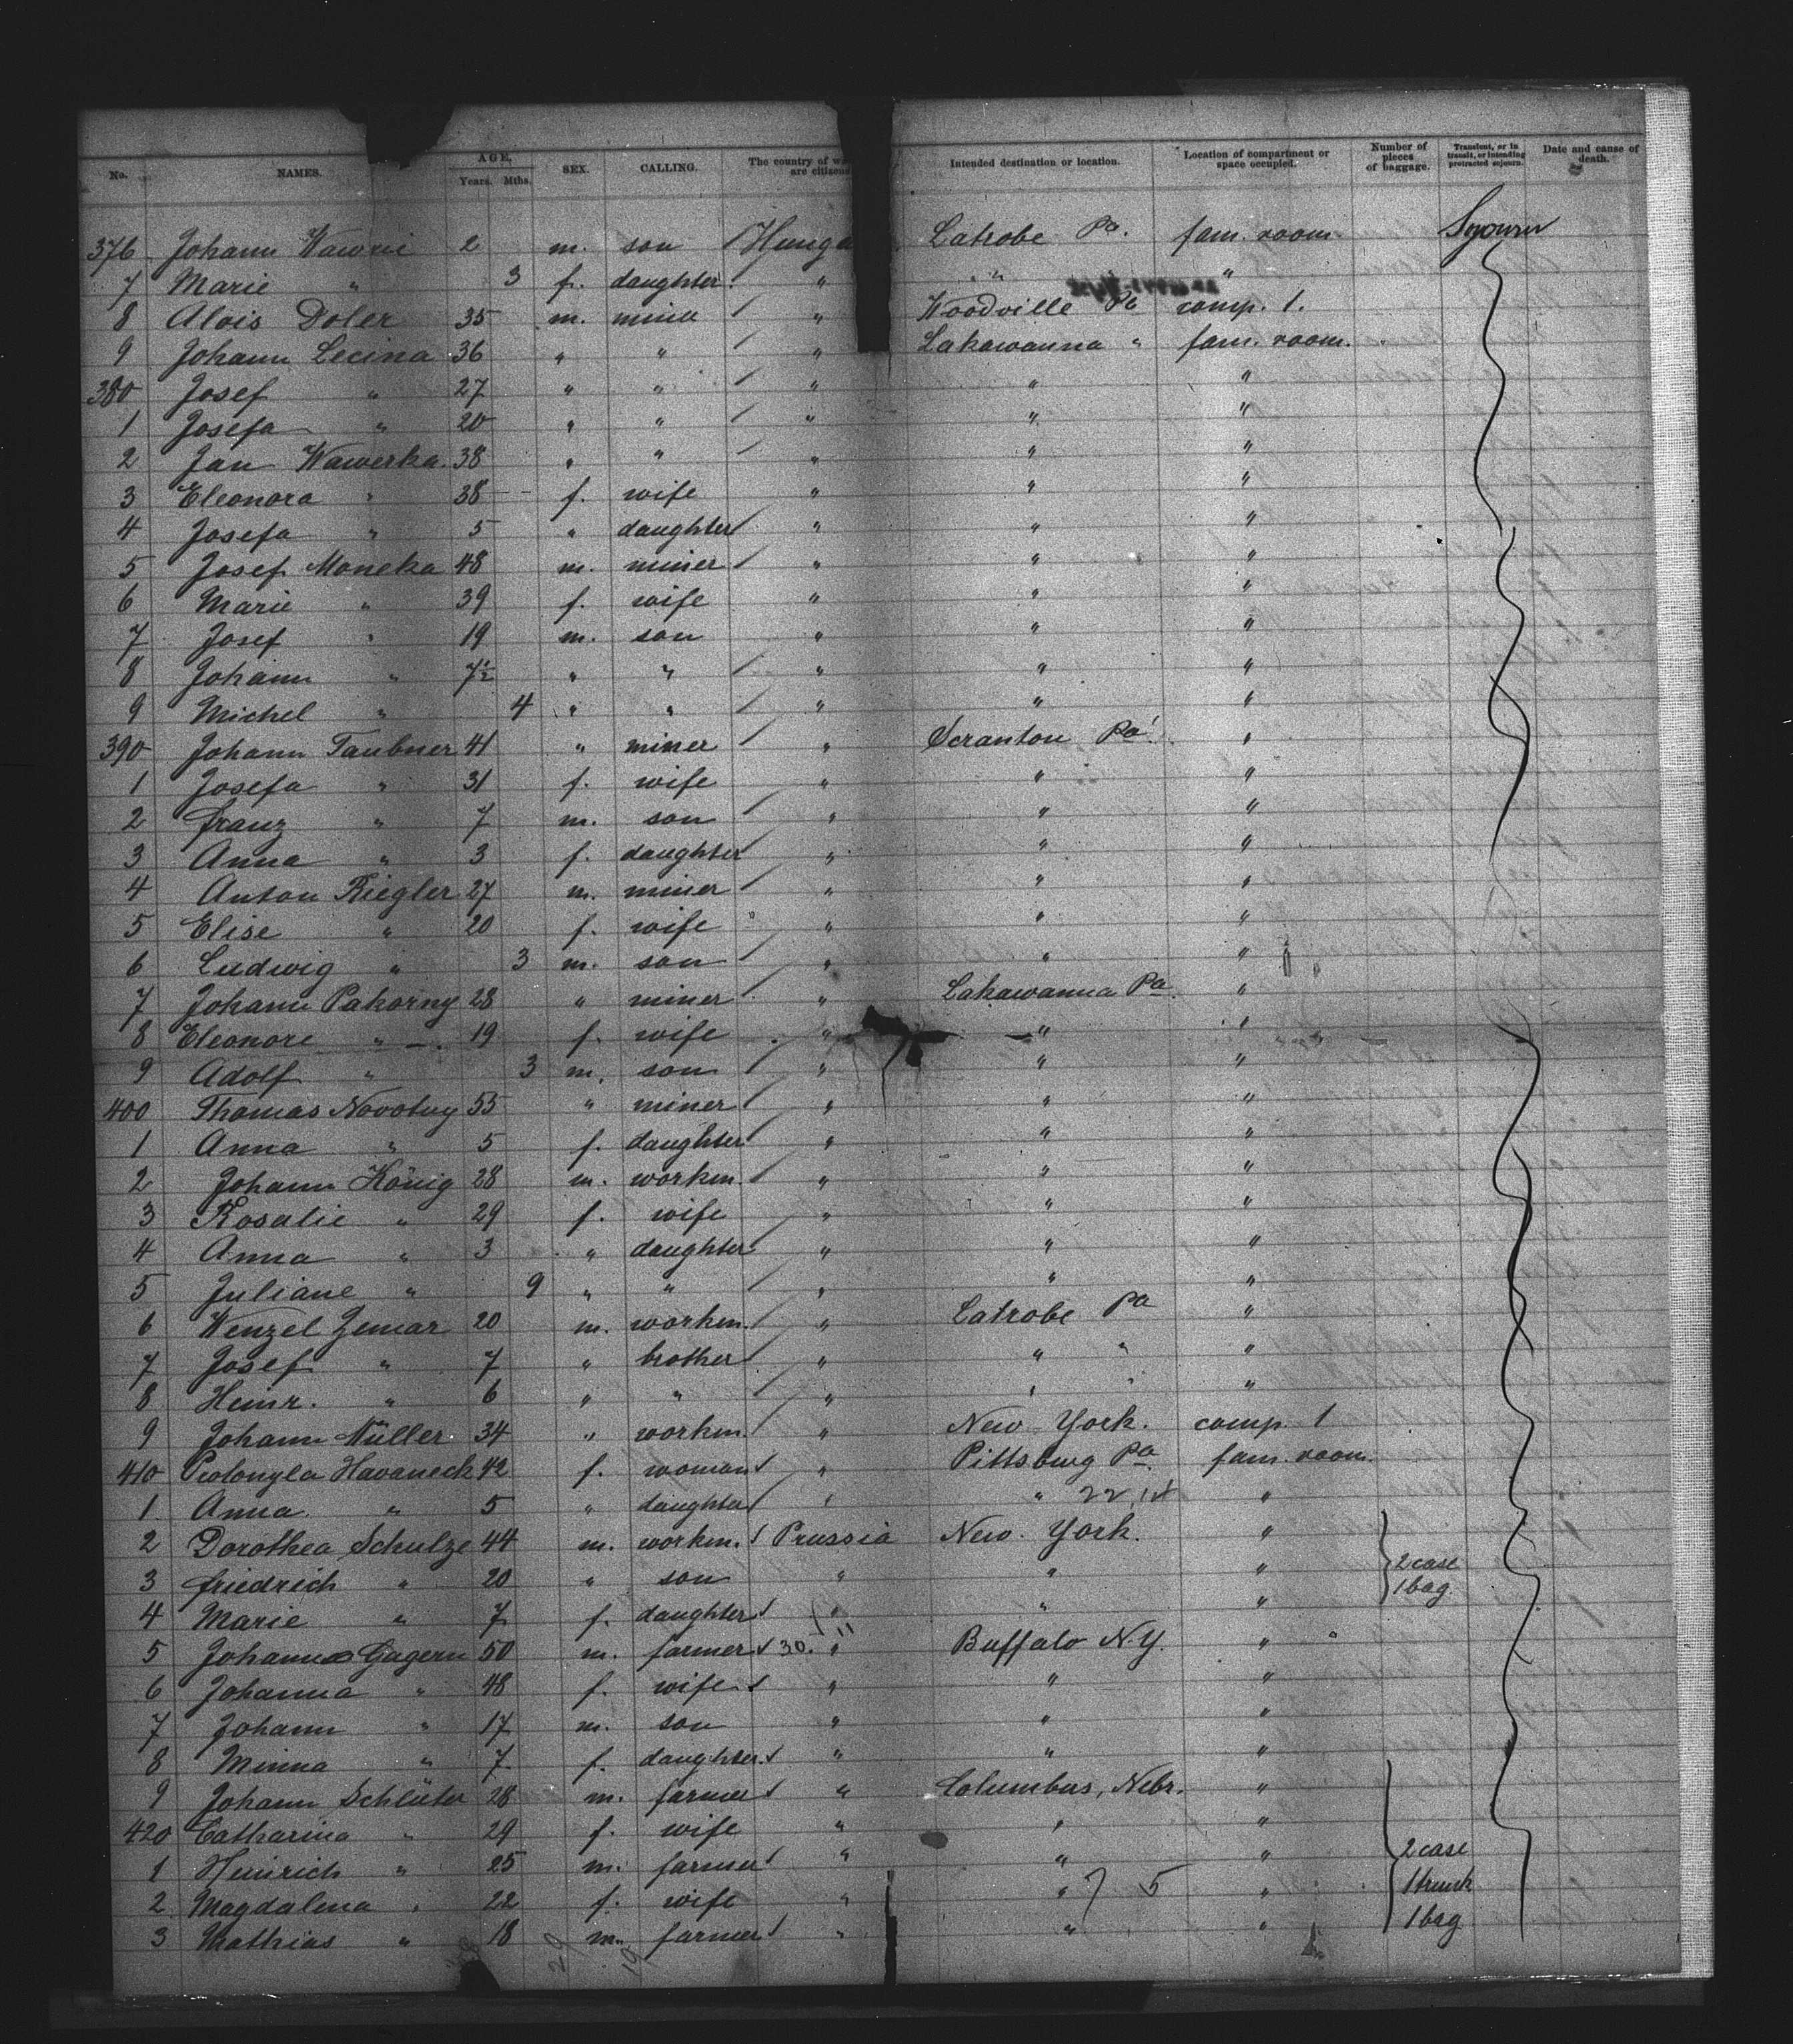 No. NAMES. AGE. Years. Mths. SEX. CALLING. The country of are citizens Intended destination or location. Location of compartment or space occupied. Number of pieces of baggage. Transient, or in transit, or intending protracted sojourn. Date and cause of death.
376 Johann 2 m. son Hunga Latrobe Pa. fam. room Sojourn
7 Marie " 3 f. daughter " " " "
8 Alois Doler 35 m. miner " Woodville Pa comp. 1.
9 Johann Lecina 36 " " " Lakawanna " fam. room.
380 Josef " 27 " " " " "
1 Josefa " 20 " " " " "
2 Jan Wawerka 38 " " " " "
3 Eleonora " 38 f. wife " " "
4 Josefa " 5 " daughter " " "
5 Josef Moneka 48 m. miner " " "
6 Marie " 39 f. wife " " "
7 Josef " 19 m. son " " "
8 Johann " 7½ " " " " "
9 Michel " 4 " " " " "
390 Johann Taubner 41 " miner " Scranton Pa. "
1 Josefa " 31 f. wife " " "
2 Franz " 7 m. son " " "
3 Anna " 3 f. daughter " " "
4 Anton Riegler 27 m. miner " " "
5 Elise " 20 f. wife " " "
6 Ludwig " 3 m. son " " "
7 Johann Pakorny 28 " miner " Lakawanna Pa. "
8 Eleonore " 19 f. wife " " "
9 Adolf " 3 m. son " " "
400 Thomas Novotny 55 " miner " " "
1 Anna " 5 f. daughter " " "
2 Johann König 28 m. workm. " " "
3 Rosalie " 29 f. wife " " "
4 Anna " 3 " daughter " " "
5 Juliane " 9 " " " " "
6 Wenzel Zemar 20 m. workm. " Latrobe Pa "
7 Josef " 7 " brother " " " "
8 Heinr. " 6 " " " " " "
9 Johann Müller 34 " workm. " New York. comp. 1
410 Havaneck 42 f. woman " Pittsburg Pa. fam. room.
1 Anna " 5 " daughter " " "
2 Dorothea Schulze 44 m. workm. Prussia New York. "
3 Friedrich " 20 " son " " " 2 case 1 bag.
4 Marie " 7 f. daughter " " "
5 Johannes Gagern 50 m. farmer 30. " Buffalo N.Y. "
6 Johanna " 48 f. wife " " "
7 Johann " 17 m. son " " "
8 Minna " 7 f. daughter " " "
9 Johann Schlüter 28 m. farmer " Columbus, Nebr. "
420 Catharina " 29 f. wife " " "
1 Heinrich " 25 m. farmer " " " 2 case
2 Magdalena " 22 f. wife " " 5 " 1 trunk
3 Mathias " 18 m. farmer " " " 1 bag
29